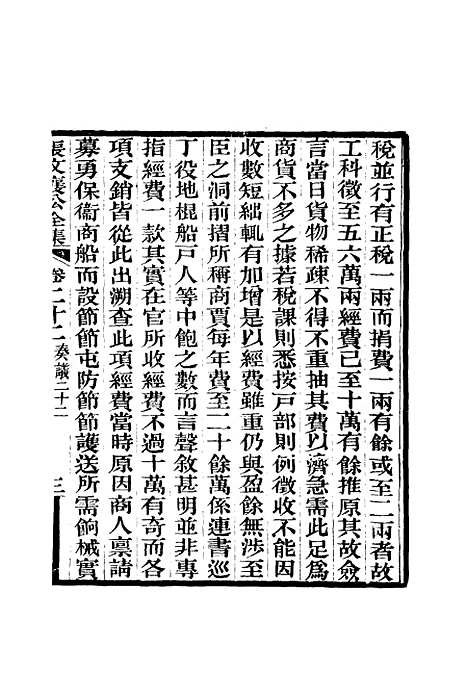 稅並行有正稅一兩而捐費一兩有餘或至二兩者故
工科徵至五六萬兩經費已至十萬有餘推原其故僉
言當日貨物稀疎不得不重抽其費以濟急需此足爲
商貨不多之據若稅課則悉按戸部則例徵收不能因
收數短絀輒有加增是以經費雖重仍與盈餘無涉至
臣之洞前摺所稱商賈每年費至二十餘萬係連書巡
丁役地棍船戸人等中飽之數而言聲敘甚明並非專
指經費一款其實在官所收經費不過十萬有奇而各
項支銷皆從此出溯查此項經費當時原因商人禀請
募勇保衛商船而設節節屯防節節護送所需餉械實
張文襄公全集 卷二十二 奏議二十二 三